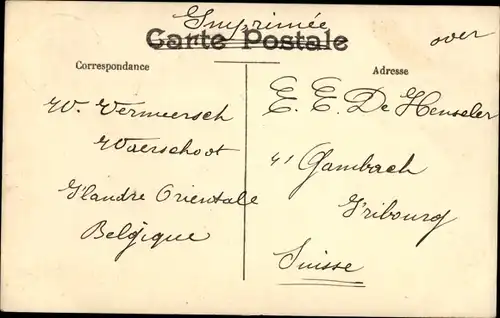 Imprimée
Carte Postale
over
Correspondance
W. Vermeersch
Waerschoot
Flandre Orientale
Belgique
Adresse
E. E. De Henseler
41 Gambach
Fribourg
Suisse